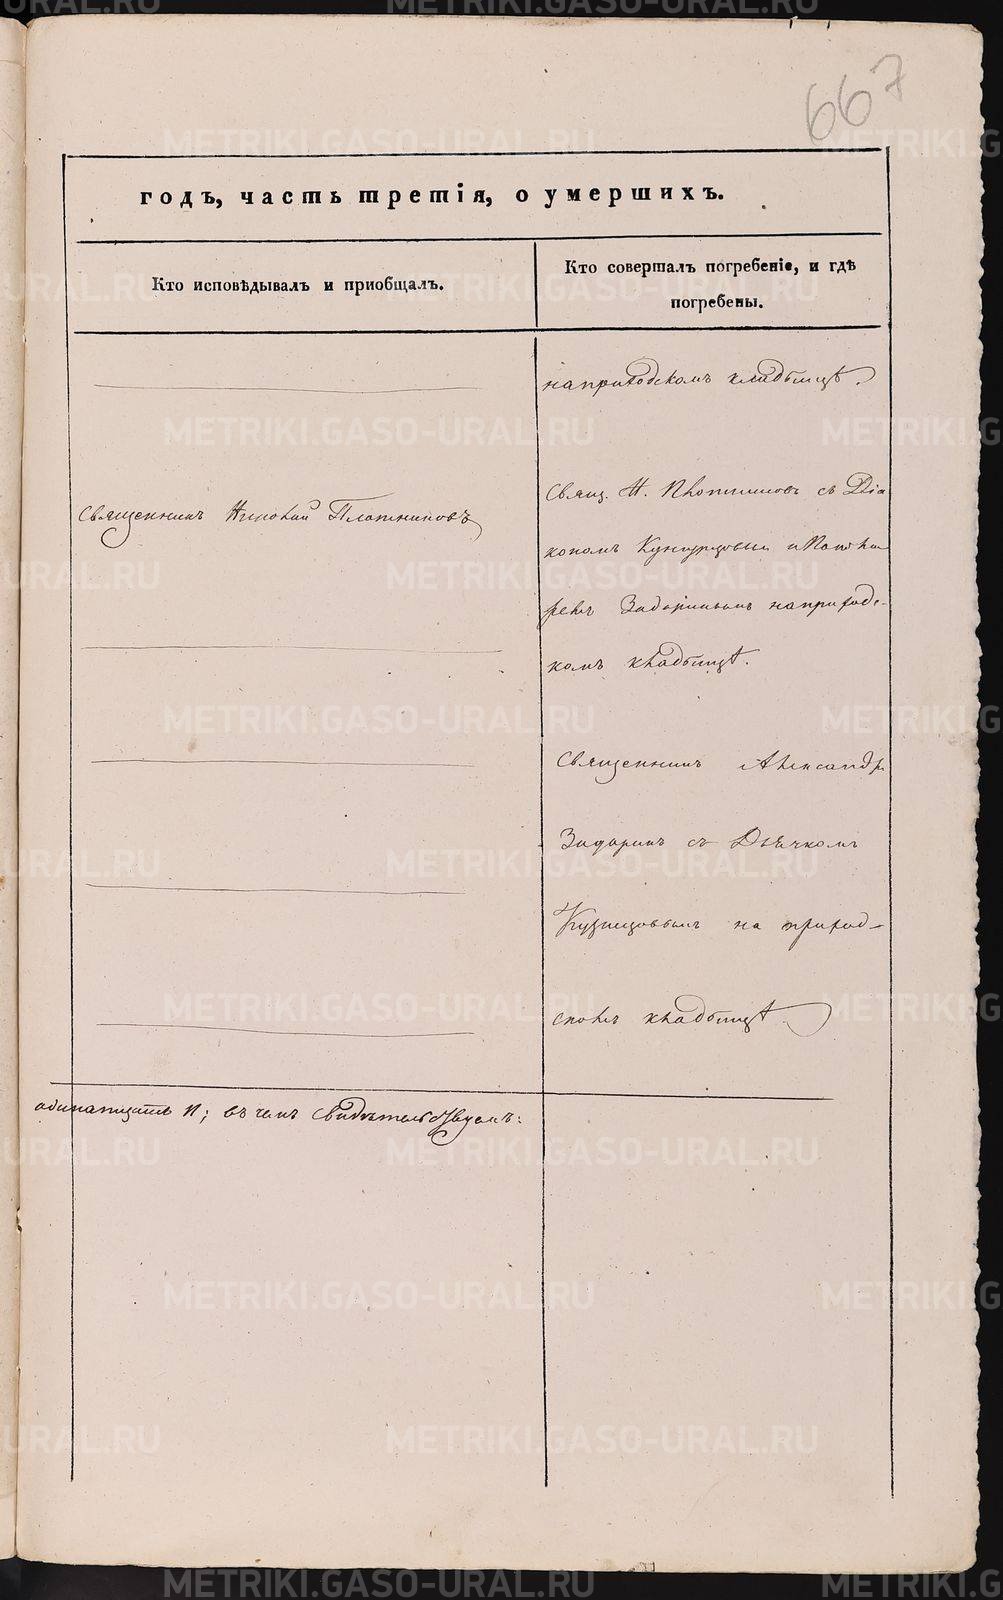 667
годъ, часть третія, о умершихъ.
Кто исповѣдывалъ и пріобщалъ.
Кто совершалъ погребеніе, и гдѣ
погребены.
на приходскомъ кладбищѣ.
Священникъ Николай Плотниковъ
Свящ. Н. Плотниковъ съ Діа
кономъ Кузнецовымъ и Понома
ремъ на приход-
комъ кладбищѣ.
Священникъ Александръ
съ Дьячкомъ
Кузнецовымъ на приход-
скомъ кладбищѣ.
одинацать и; въ чемъ свидѣтельствуемъ:
METRIKI.GASO-URAL.RU